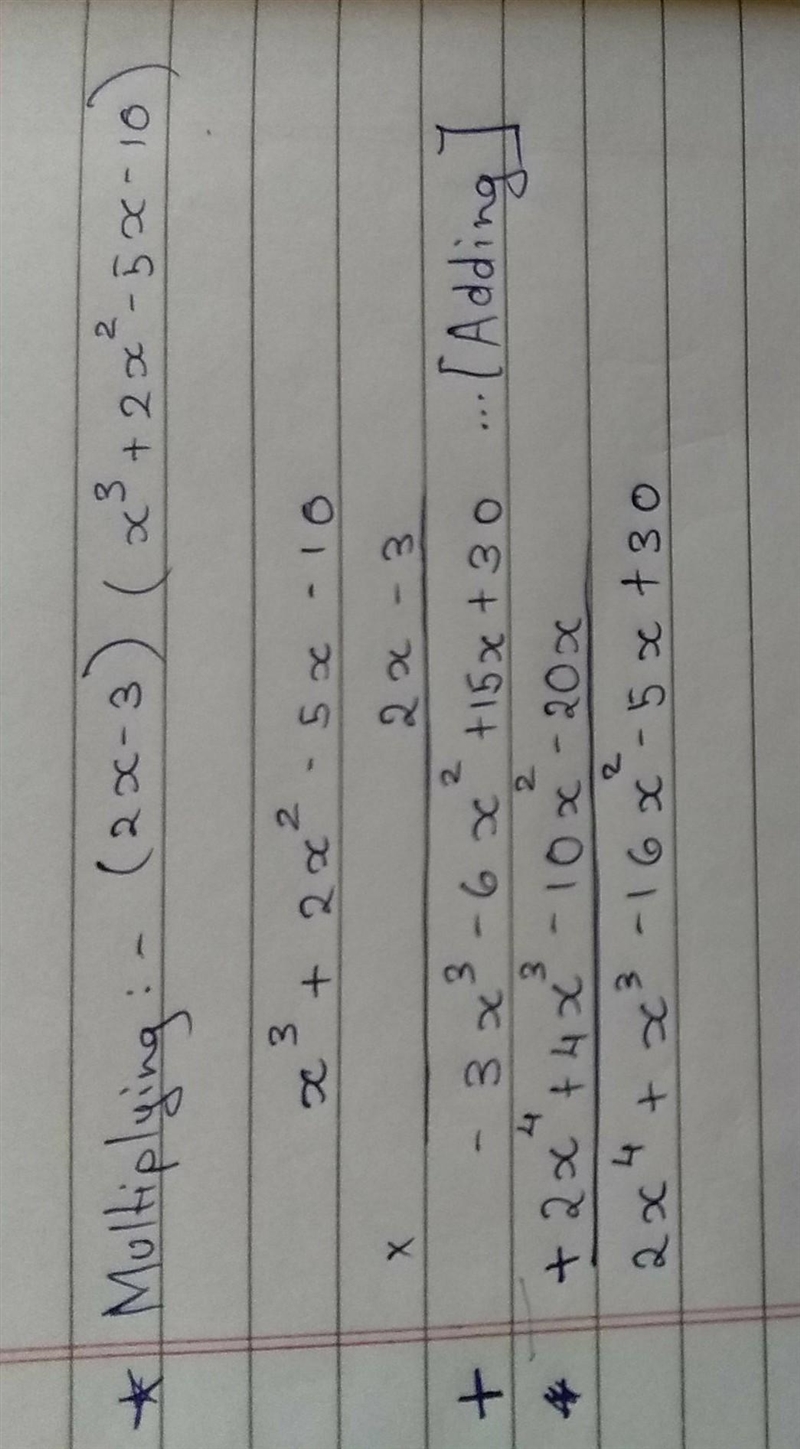 * Multiplying :- (2x-3) (x³+2x²-5x-10)
x³ + 2x² - 5x - 10
x 2x - 3
+ - 3x³ - 6x² +15x + 30 ...[Adding]
* + 2x⁴ + 4x³ - 10x² - 20x
2x⁴ + x³ - 16x² - 5x + 30